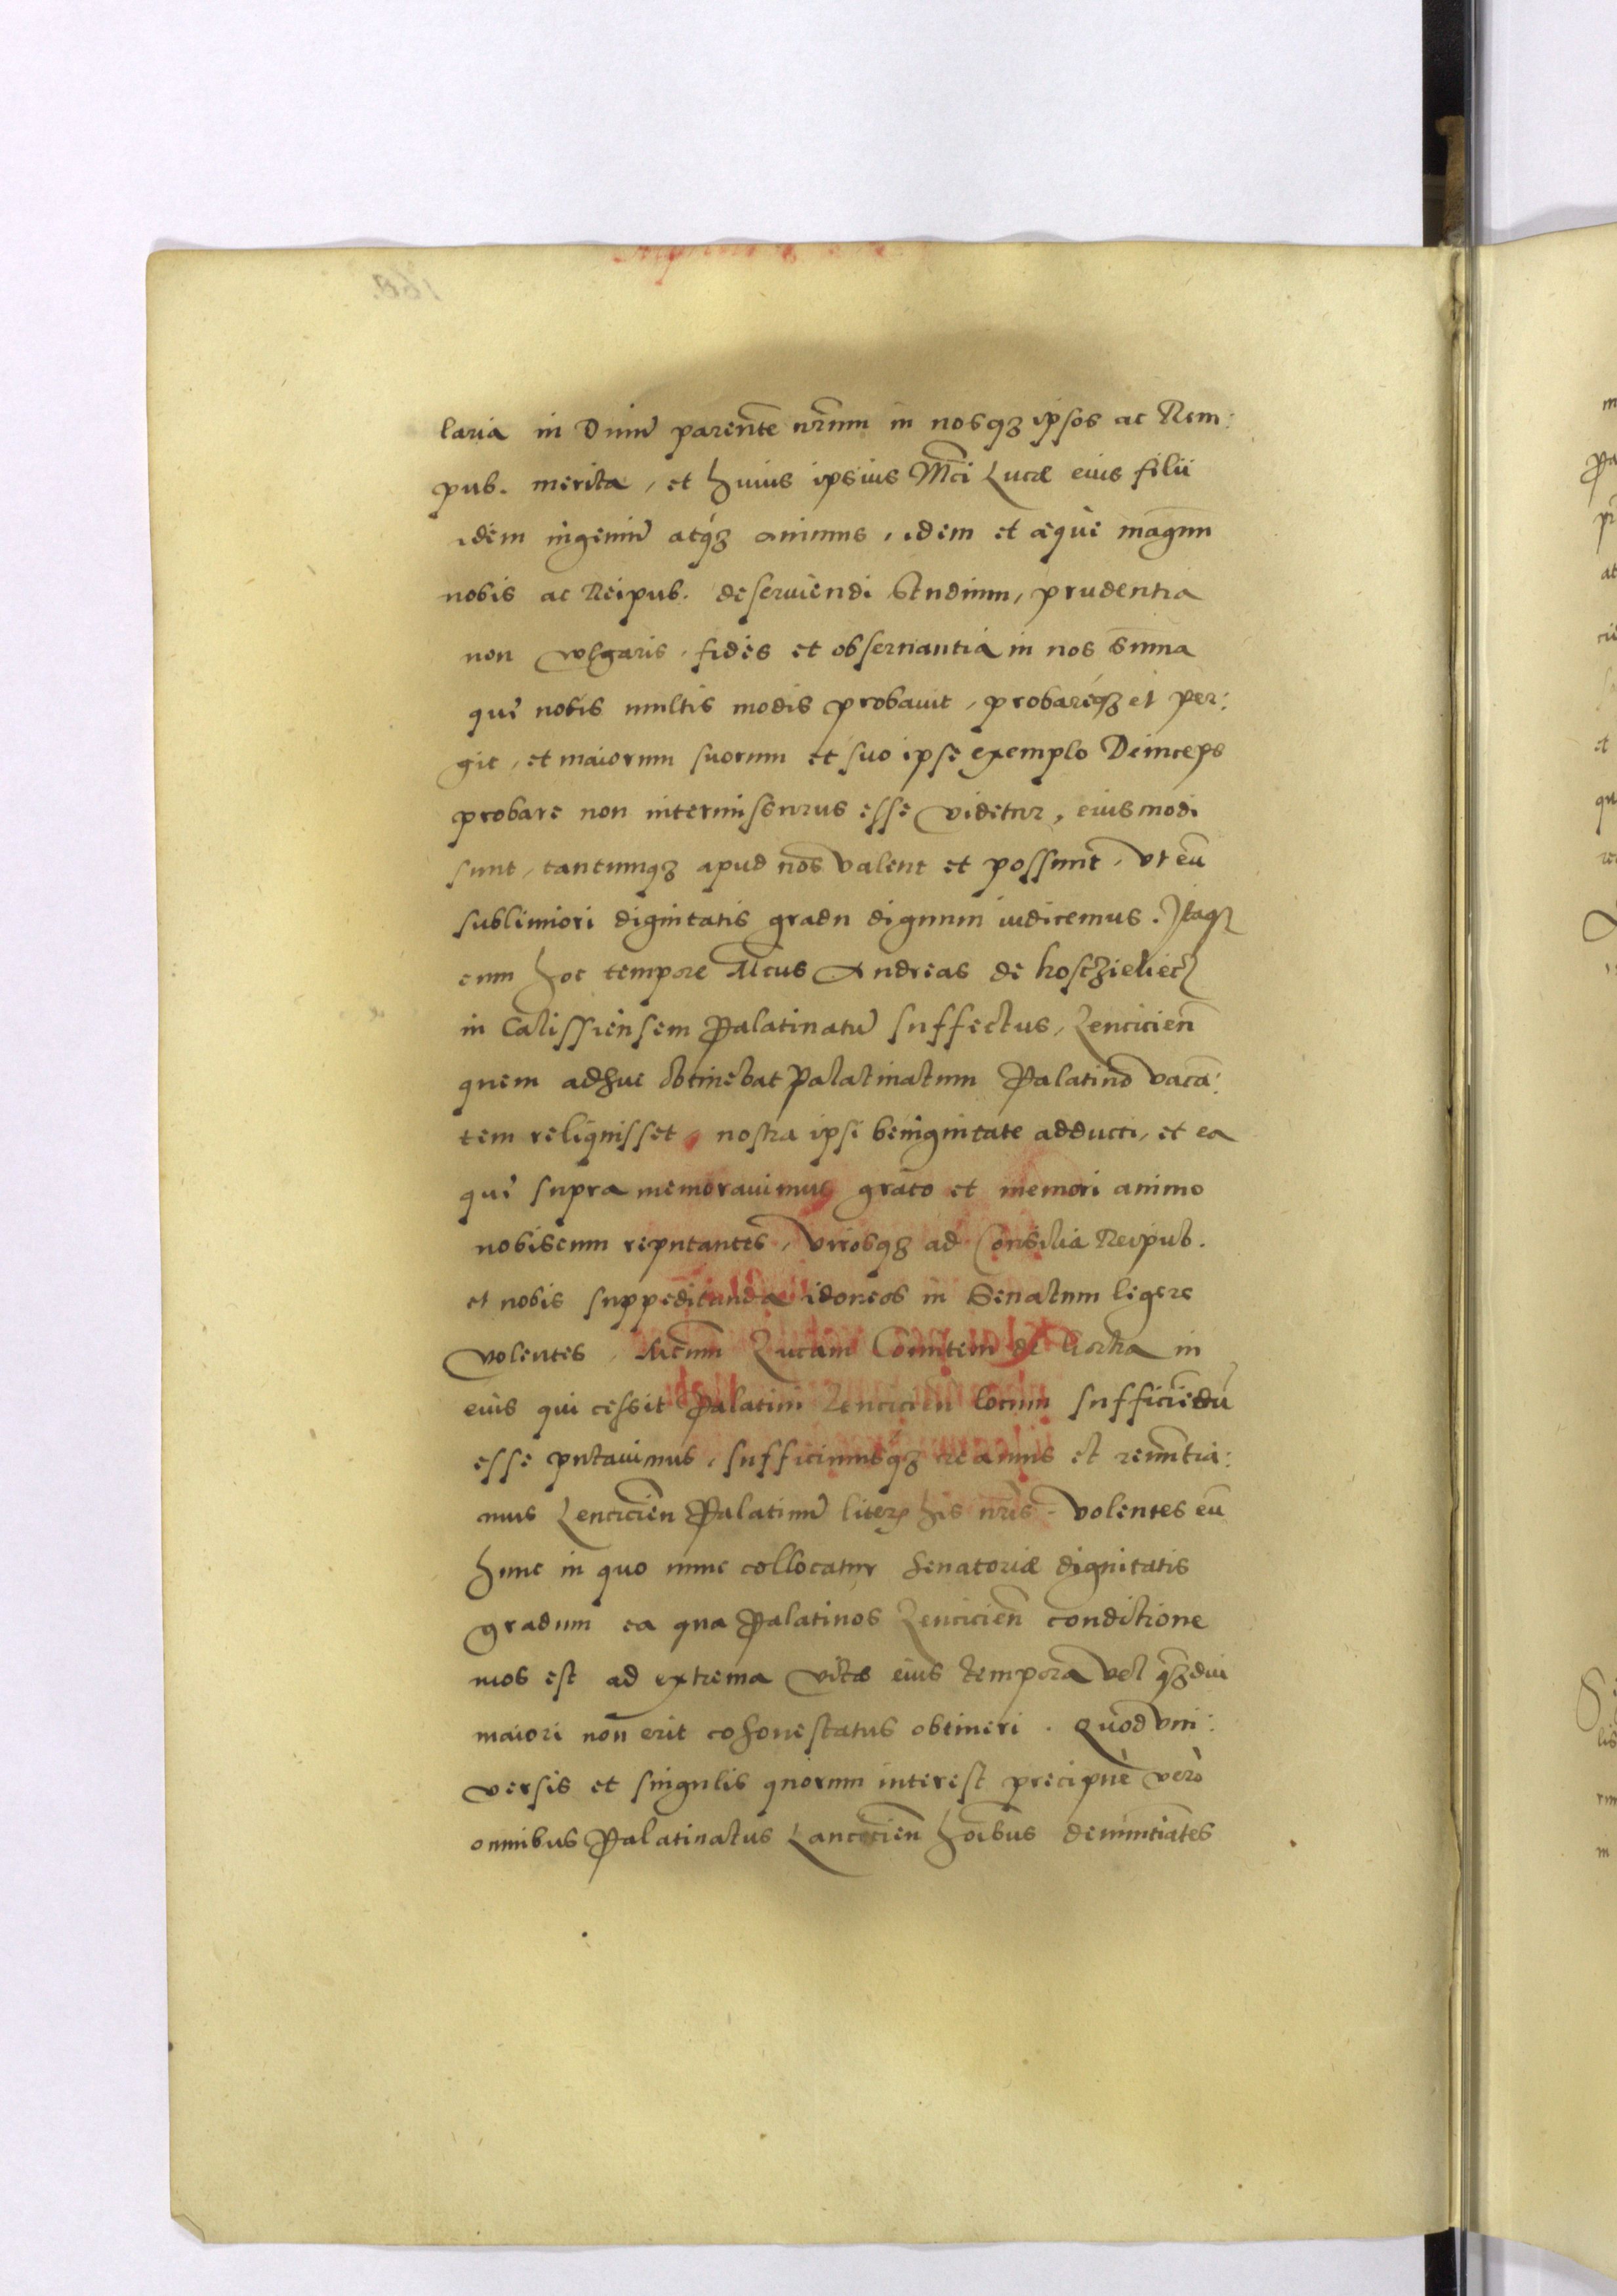 laria in Diuũ parentẽ nr̃um in nosqꝫ ipsos ac Rem:
pub. merita, et huius ipsius Mci Lucæ eius filii
idem ingeniũ atqꝫ animus, idem et æque magnũ
nobis ac Reipub. deseruiendi studium, prudentia
non vulgaris, fides et obseruantia in nos sũma
qui nobis multis modis probauit, probareqꝫ et per:
git, et maiorum suorum et suo ipse exemplo Deinceps
probare non intermissurus esse videtur, eiusmodi
sunt, tantumqꝫ apud nos valent et possunt, vt eũ
sublimiori dignitatis gradu dignum iudicemus. Itaqꝫ
cum hoc tempore Mcus Andreas de Kosczieliecz
in Calissiensem Palatinatũ suffectus, Lencicieñ
quem adhuc obtinebat Palatinatum Palatino vacã:
tem reliquisset, nostra ipsi benignitate adducti, et ea
qui supra memorauimus grato et memori animo
nobiscum reputantes, virosqꝫ ad Consilia Reipub.
et nobis suppeditanda idoneos in Senatum legere
volentes, Mcum Lucam Comitem de Gorka in
eius qui cessit Palatini Lencicieñ locum sufficiẽdũ
esse putauimus, sufficimusqꝫ creamus et renuntia:
mus Lencicieñ Palatinũ literis his nr̃is. volentes eũ
hunc in quo nunc collocatur Senatoriæ dignitatis
gradum ea qua Palatinos Lencicieñ conditione
mos est ad extrema vitæ eius tempora vel qꝫdiu
maiori non erit cohonestatus obtineri. Quod vni:
versis et singulis quorum interest precipuè verò
omnibus Palatinatus Lancicieñ hoĩbus denuntiãtes